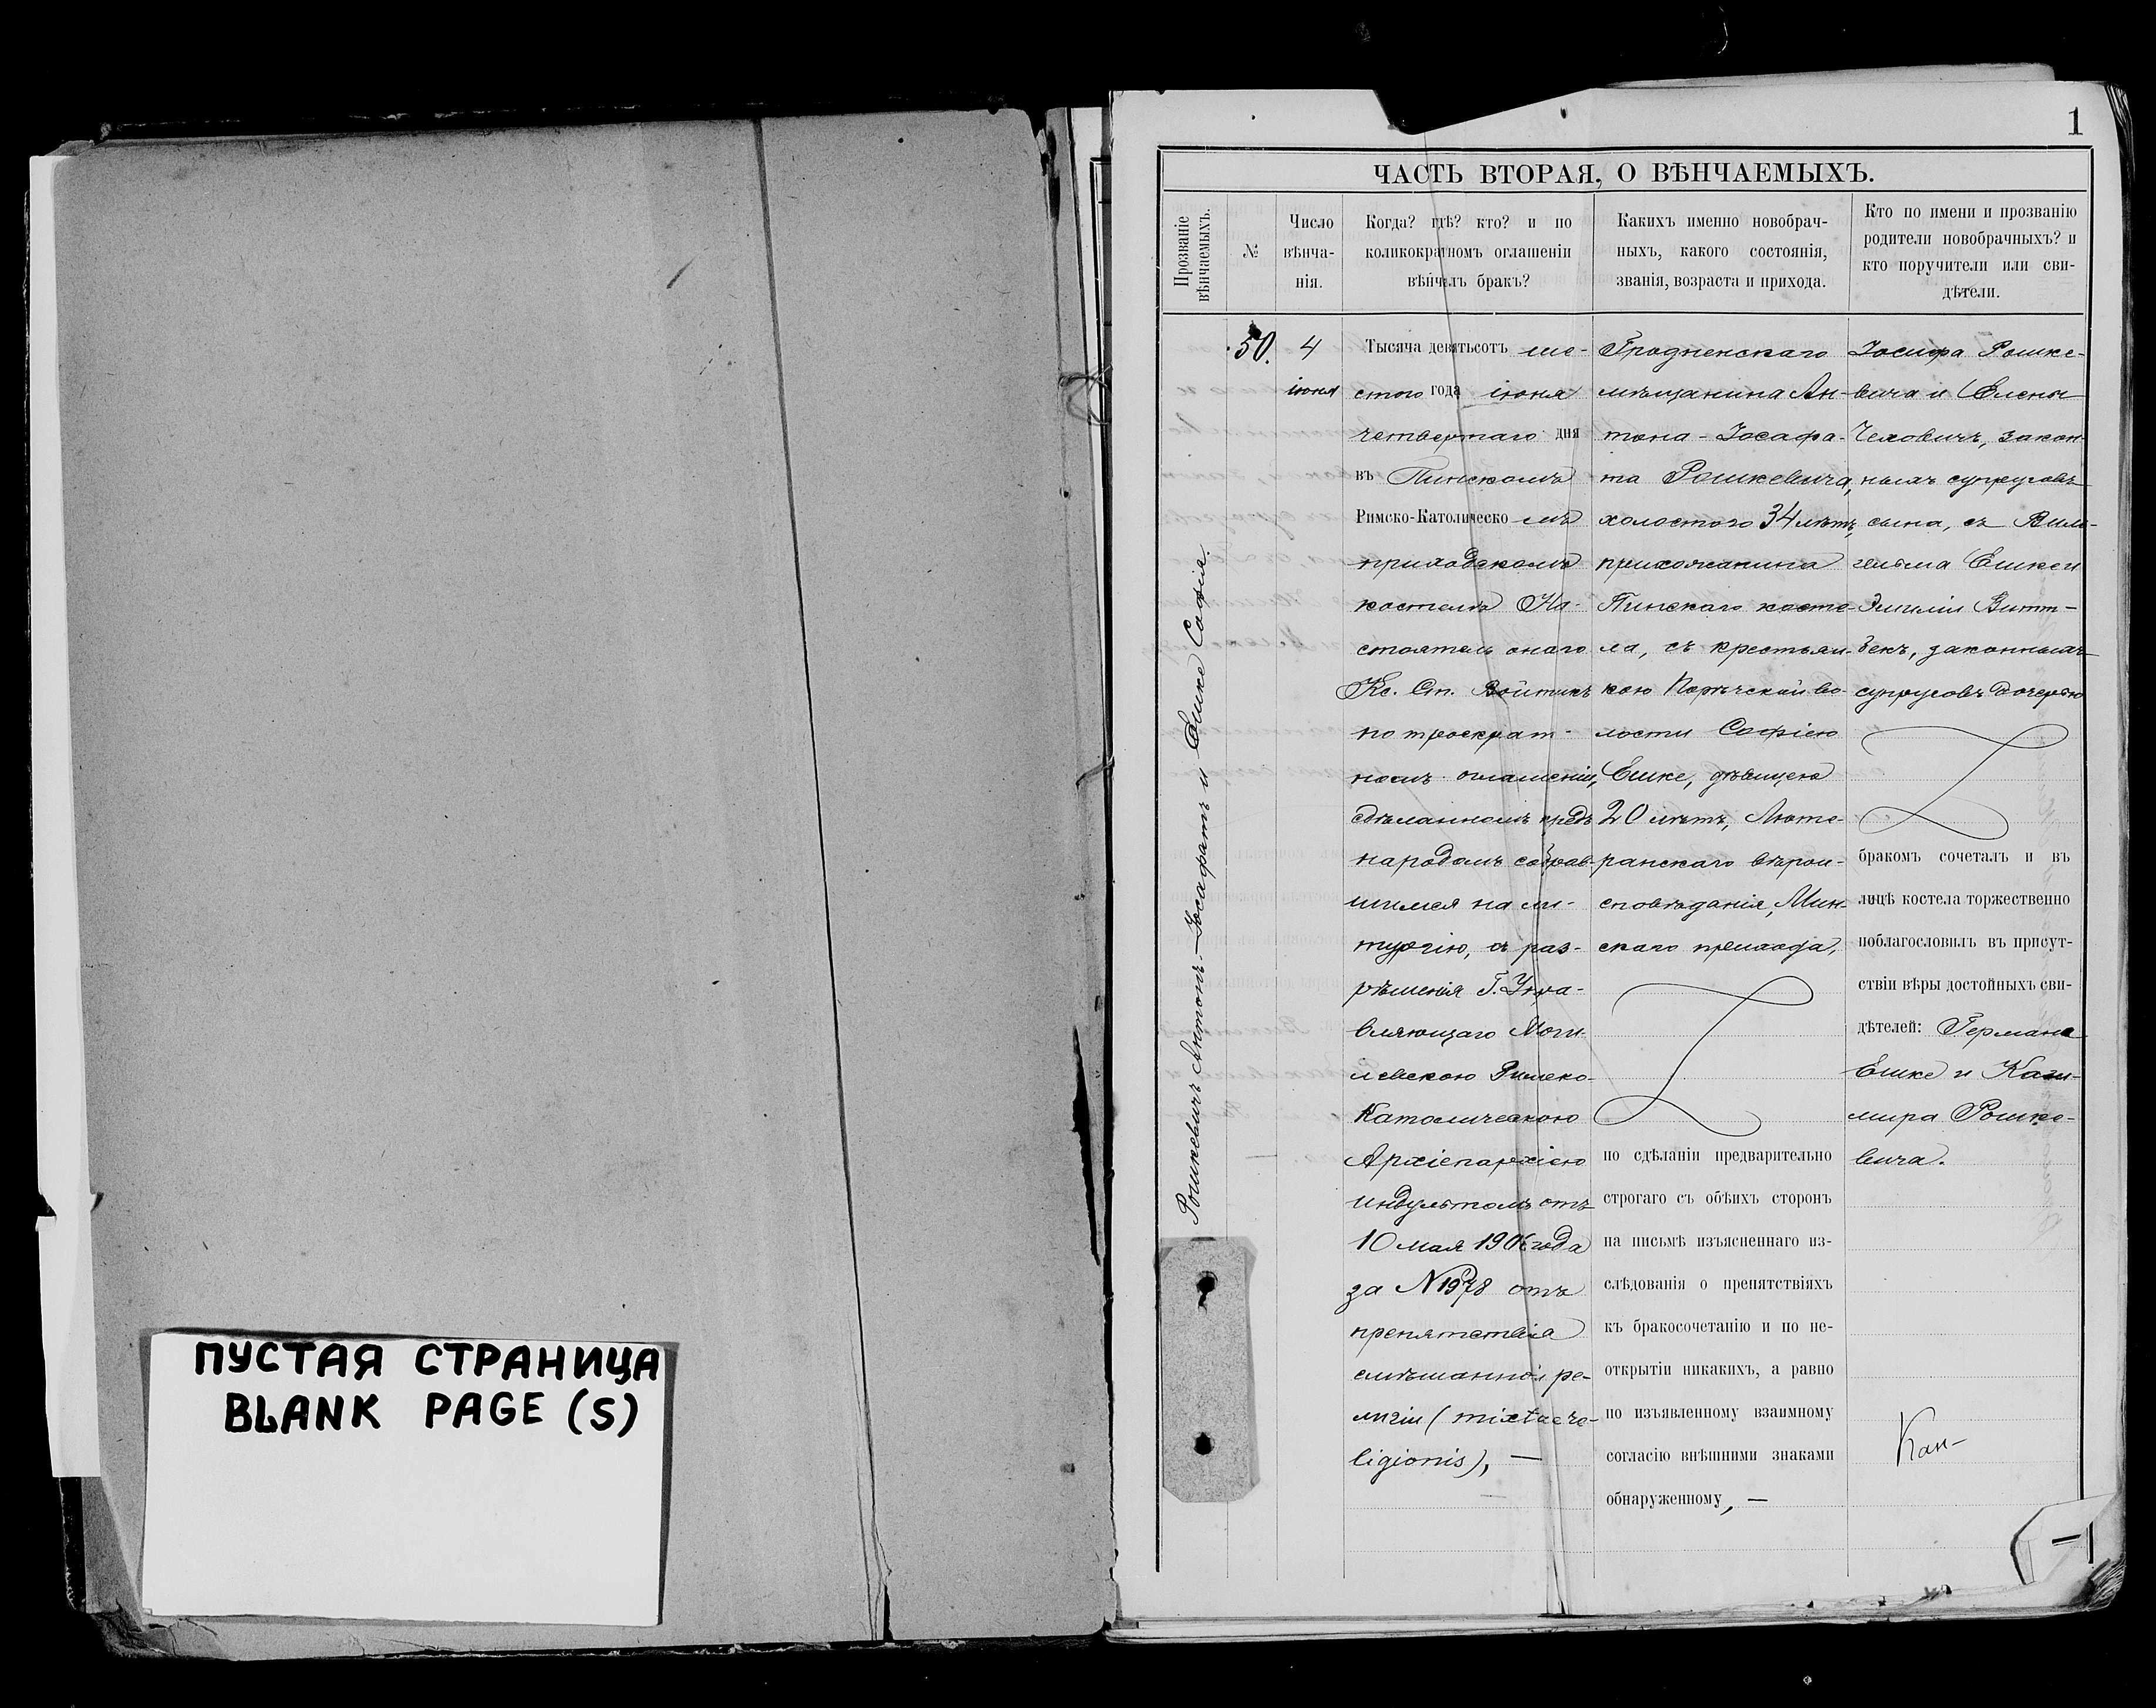 ПУСТАЯ СТРАНИЦА
BLANK PAGE (S)
1
ЧАСТЬ ВТОРАЯ, О ВѢНЧАЕМЫХЪ.
Прозваніе
вѣнчаемыхъ.
№
Число
вѣнча-
нія.
Когда? гдѣ? кто? и по
коликократномъ оглашеніи
вѣнчалъ бракъ?
Какихъ именно новобрач-
ныхъ, какого состоянія,
званія, возраста и прихода.
Кто по имени и прозванію
родители новобрачныхъ? и
кто поручители или сви-
дѣтели.
Рошкевичъ Антонъ-Іосафатъ и Ешке Софія.
50.
4
іюня
Тысяча девятьсотъ ше-
стого года іюня
четвертаго дня
въ Пинскомъ
Римско-Католическомъ
приходскомъ
костелѣ На-
стоятель онаго
Кс. Ст. Войтикъ
по троекрат-
номъ оглашеніи,
сдѣланномъ предъ
народомъ собрав-
шимся на ли-
тургію, съ раз-
рѣшенія Г. Упра-
вляющаго Моги-
левскою Римско-
Католическою
Архіепархіею
индультомъ отъ
10 мая 1906 года
за N 1978 отъ
препятствія
смѣшанной ре-
лигіи (mixtae re-
ligionis), —
Гродненскаго
мѣщанина Ан-
тона-Іосафа-
та Рошкевича,
холостого 34 лѣтъ,
прихожанина
Пинскаго косте-
ла, съ крестьян-
кою Порѣчской во-
лости Софіею
Ешке, дѣвицею
20 лѣтъ, Люте-
ранскаго вѣрои-
сповѣданія, Мин-
скаго прихода,
по сдѣланіи предварительно
строгаго съ обѣихъ сторонъ
на письмѣ изъясненнаго из-
слѣдованія о препятствіяхъ
къ бракосочетанію и по не-
открытіи никакихъ, а равно
по изъявленному взаимному
согласію внѣшними знаками
обнаруженному, —
Іосифа Рошке-
вича и Елены
Чеховичъ, закон-
ныхъ супруговъ
сына, съ Виль-
гельма Ешке и
Эмиліи Витт-
бекъ, законныхъ
супруговъ дочерью
бракомъ сочеталъ и въ
лицѣ костела торжественно
поблагословилъ въ присут-
ствіи вѣры достойныхъ сви-
дѣтелей: Германа
Ешке и Кази-
мира Рошке-
вича.